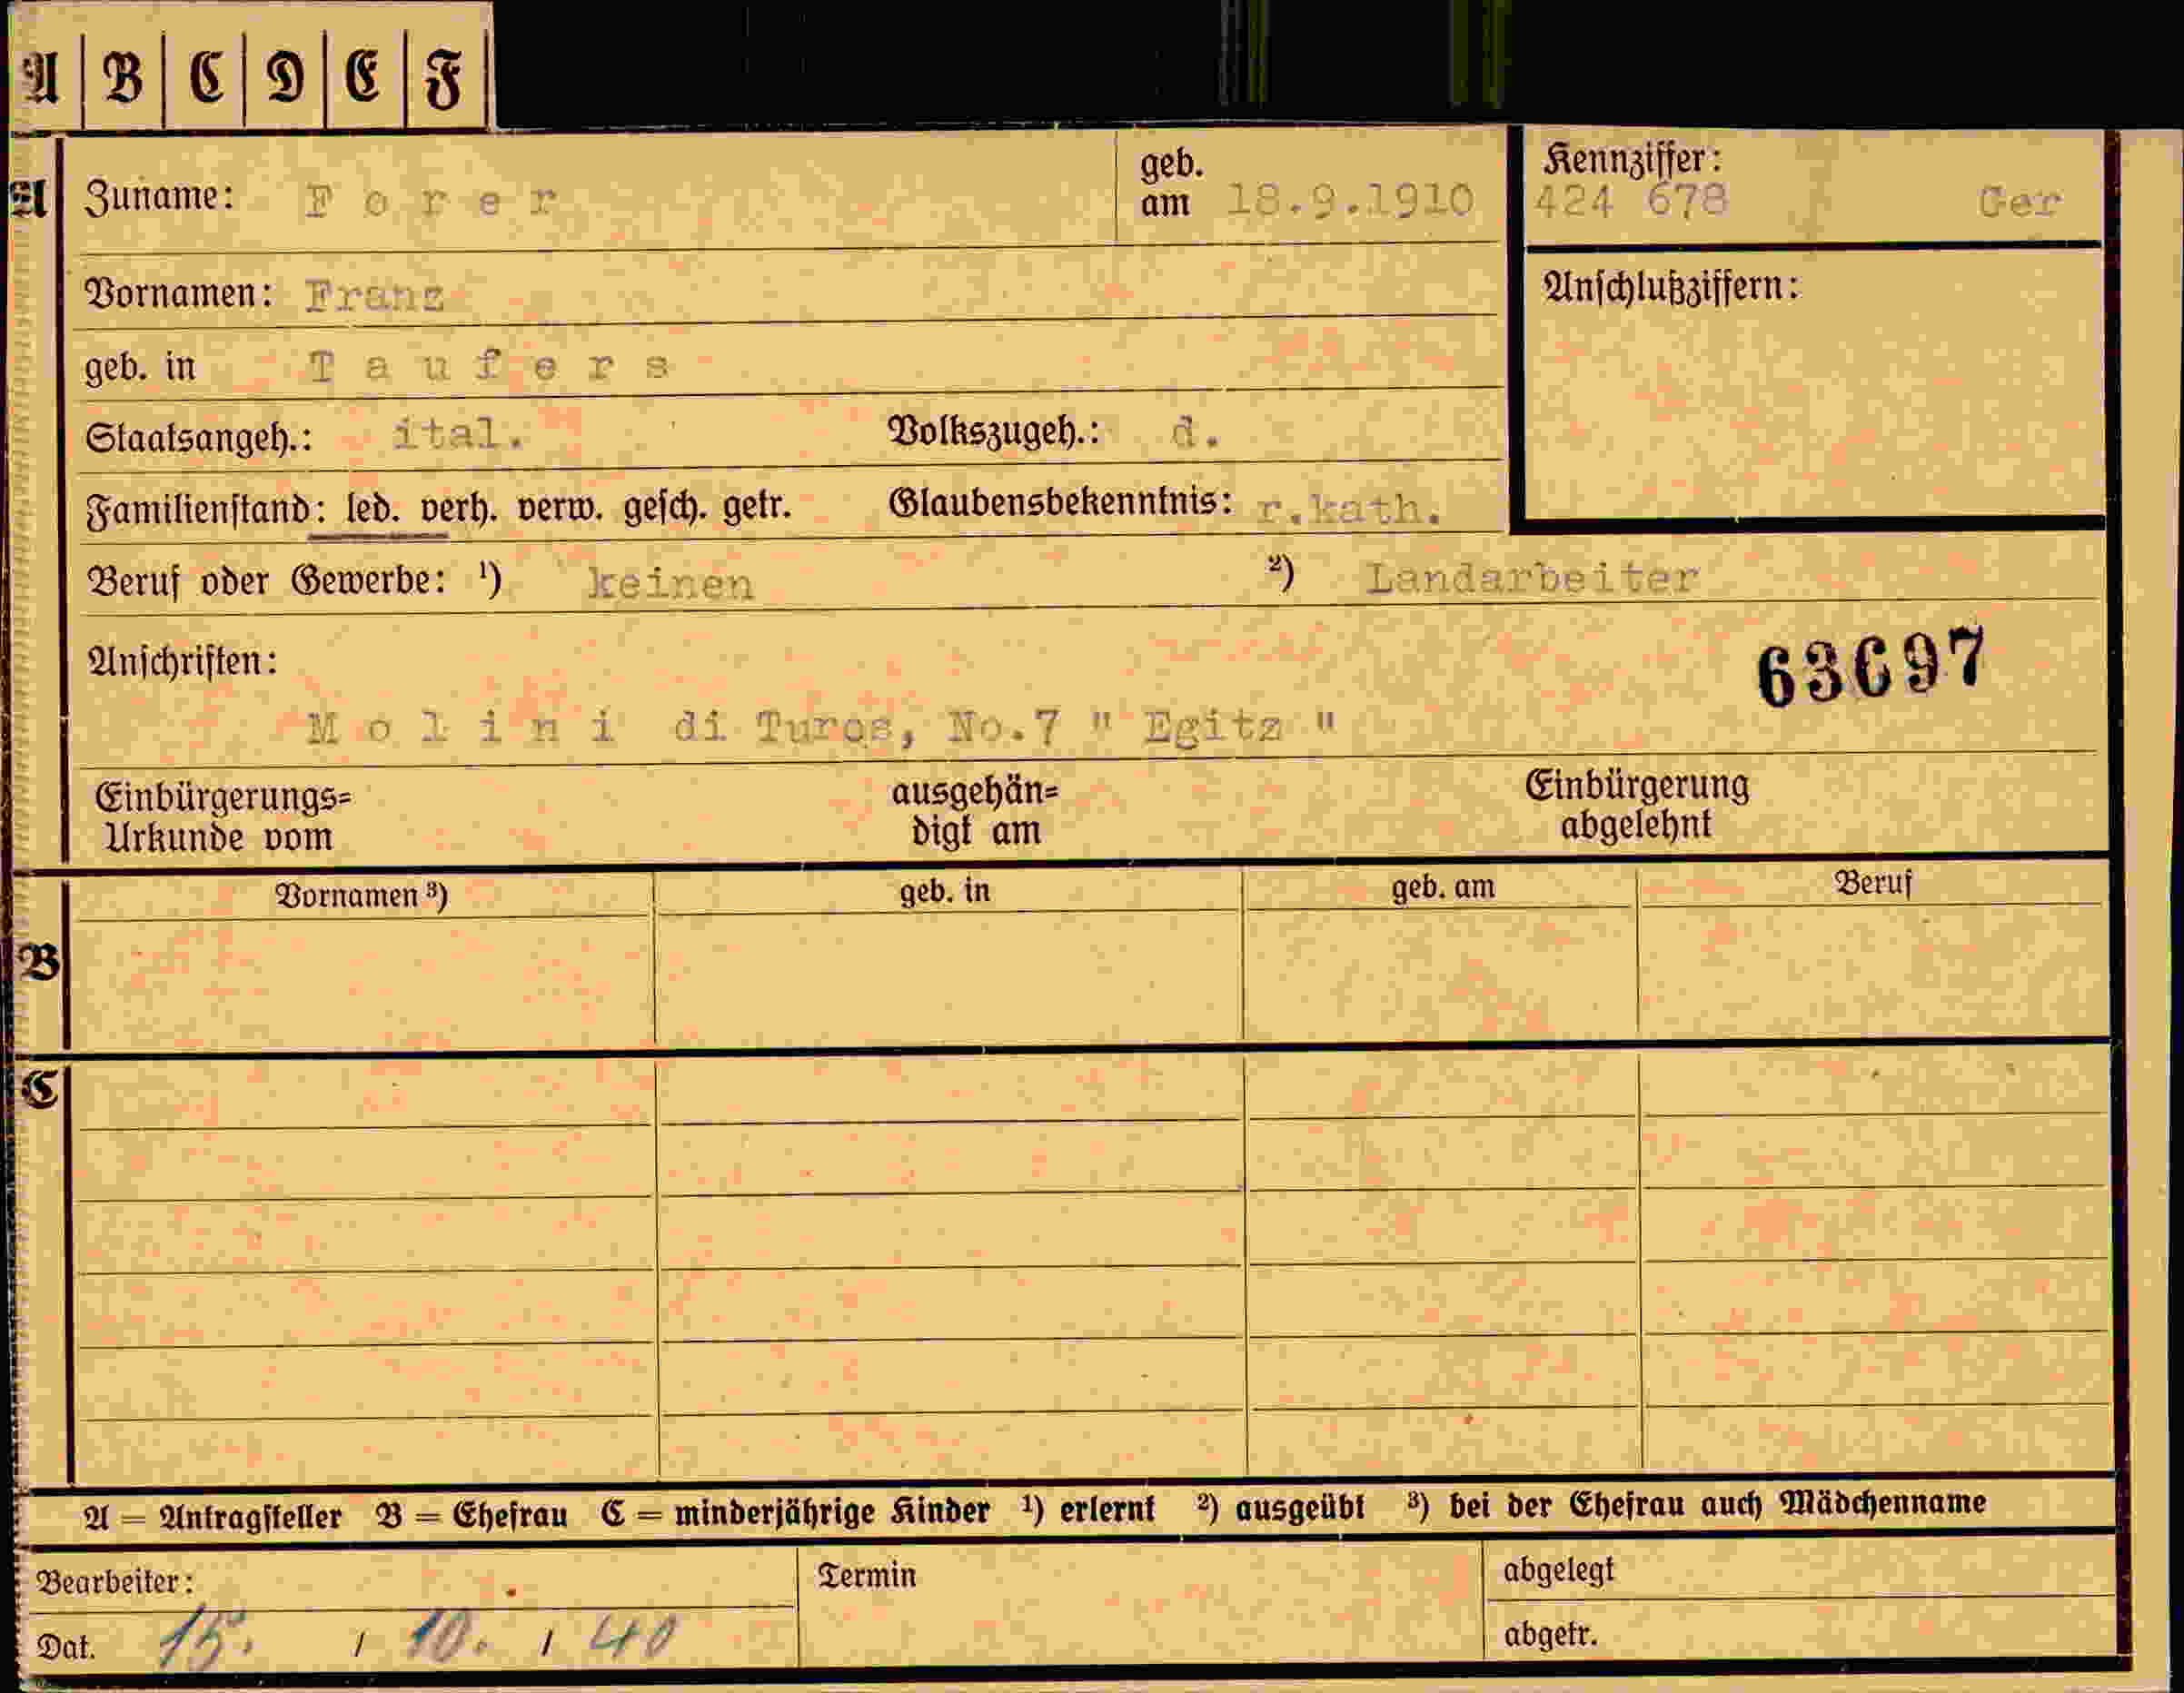 A B C D E F
A Zuname: Forer geb. am 18.9.1910 Kennziffer: 424 678 Ger
Vornamen: Franz Anschlußziffern:
geb. in Taufers
Staatsangeh.: ital. Volkszugeh.: d.
Familienstand: led. verh. verw. gesch. getr. Glaubensbekenntnis: r.kath.
Beruf oder Gewerbe: ¹) keinen ²) Landarbeiter
Anschriften: 63697
Molini di Turos, No.7 " Egitz "
Einbürgerungs= ausgehän= Einbürgerung
Urkunde vom digt am abgelehnt
Vornamen ³) geb. in geb. am Beruf
B
C
A = Antragsteller B = Ehefrau C = minderjährige Kinder ¹) erlernt ²) ausgeübt ³) bei der Ehefrau auch Mädchenname
Bearbeiter: Termin abgelegt
Dat. 15. / 10. / 40 abgetr.